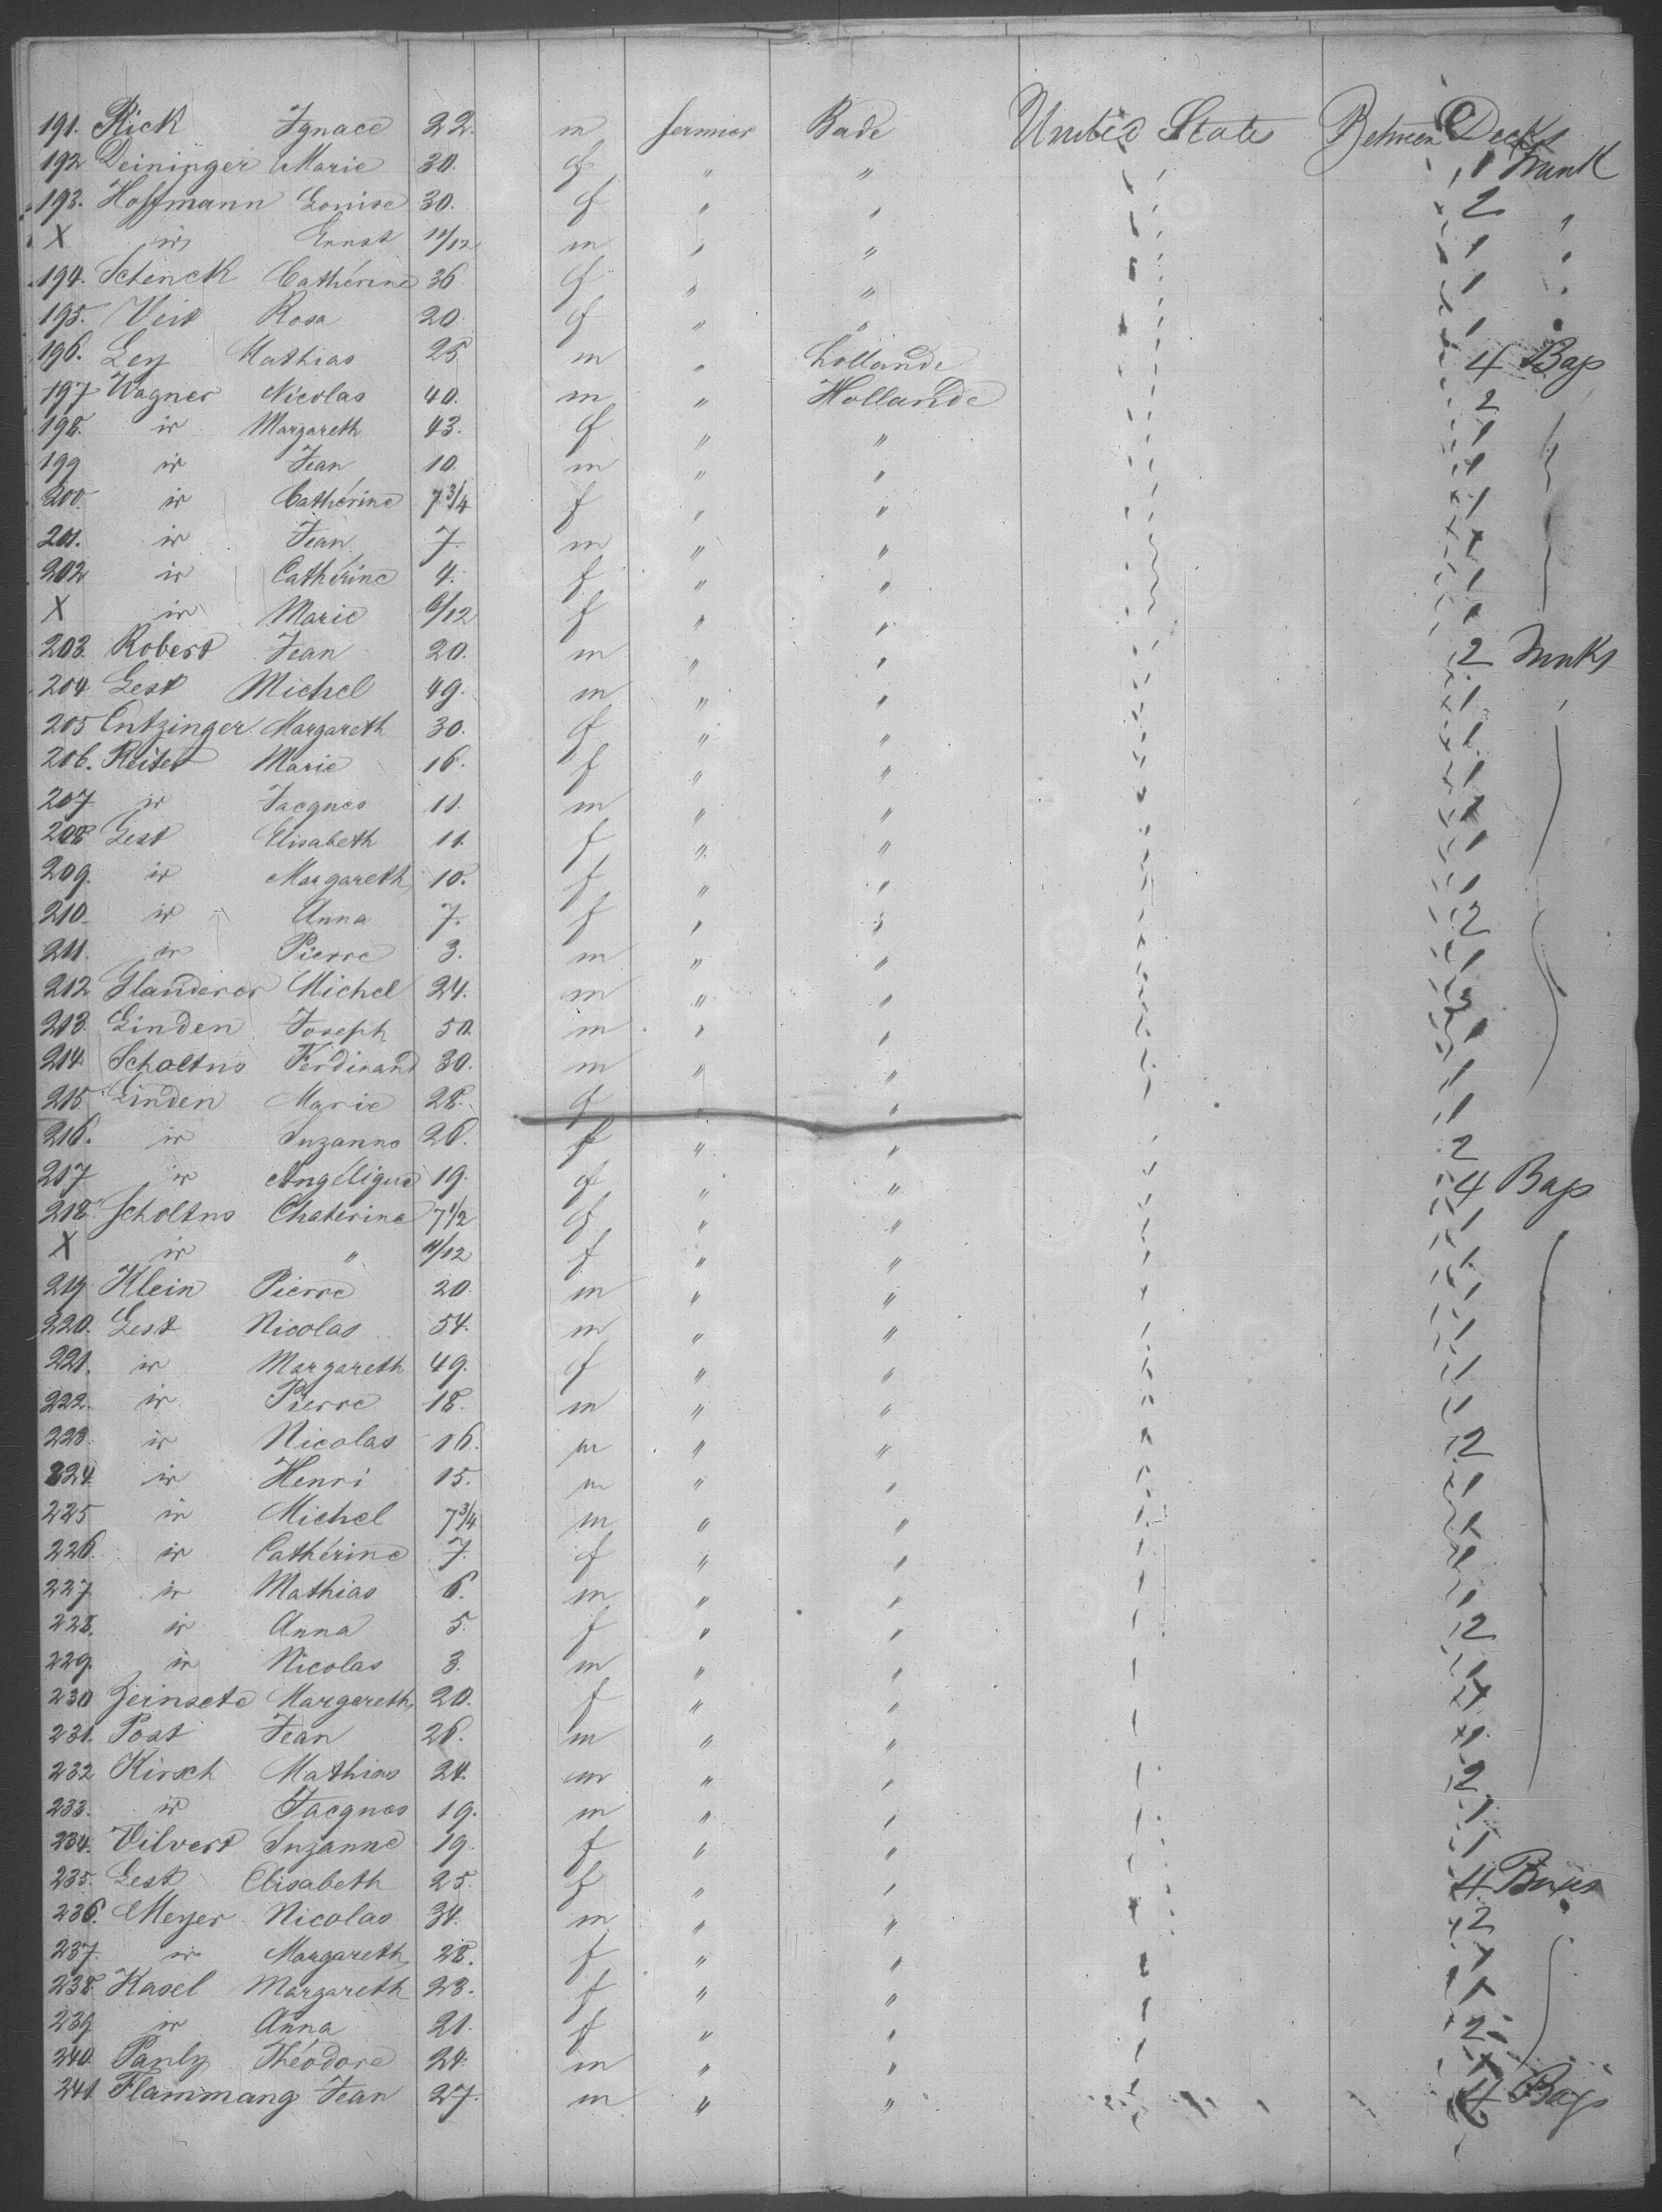 191. Rick Ignace 22. m fermier Bade United States Between Decks
192 Deininger Marie 30. f " " 1 Trunk
193. Hoffmann Louise 30. f " " 2 "
X id Ernst 11/12 m " " 1 "
194. Schenck Cathérine 36 f " " 1 "
195. Veit Rosa 20. f " " 1 "
196. Ley Mathias 25 m " hollande 4 Bags
197 Wagner Nicolas 40. m " Hollande 2
198. id Margareth 43. f " " 1
199 id Jean 10. m " " 1
200. id Cathérine 7 3/4 f " " 1
201. id Jean 7. m " " 1
202 id Cathérine 4. f " " 1
X id Marie 6/12 f " " 1
203. Robert Jean 20. m " " 2 Trunks
204 Lest Michel 49. m " " 1 "
205 Entzinger Margareth 30. f " " 1
206. Reiter Marie 16. f " " 1
207 id Jacques 11. m " " 1
208 Lest Elisabeth 11. f " " 1
209. id Margareth 10. f " " 1
210. id Anna 7. f " " 2
211. id Pierre 3. m " " 1
212 Glanderer Michel 24. m " "
213. Linden Joseph 50. m " " 1
214. Scholtns Ferdinand 30. m " " 1
215 Linden Marie 28. f " " 1
216. id Suzanne 26. f " " 2
217 id Angélique 19. f " " 4 Bags
218. Scholtns Chatérine 7 1/2 f " " 1
X id " 11/12 f " " 1
219. Klein Pierre 20. m " " 1
220. Lest Nicolas 54. m " " 1
221. id Margareth 49. f " " 1
222. id Pierre 18. m " " 1
223. id Nicolas 16. m " " 2
224. id Henri 15. m " " 1
225 id Michel 7 3/4 m " " 1
226. id Cathérine 7. f " " 1
227. id Mathias 6. m " " 1
228. id Anna 5. f " " 2
229. id Nicolas 3. m " " 1
230 Zeinsete Margareth 20. f " " 1
231. Post Jean 26. m " " 1
232 Kirsch Mathias 24. m " " 2
233. id Jacques 19. m " " 1
234. Vilvert Suzanne 19. f " " 1
235. Lest Elisabeth 25. f " " 4 Boxes
236. Meyer Nicolas 34. m " " 2
237. id Margareth 28. f " " 1
238. Kasel Margareth 23. f " " 1
239 id Anna 21. f " " 2
240. Pauly Théodore 24. m " " 1
241. Flammang Jean 27. m " " 4 Bags